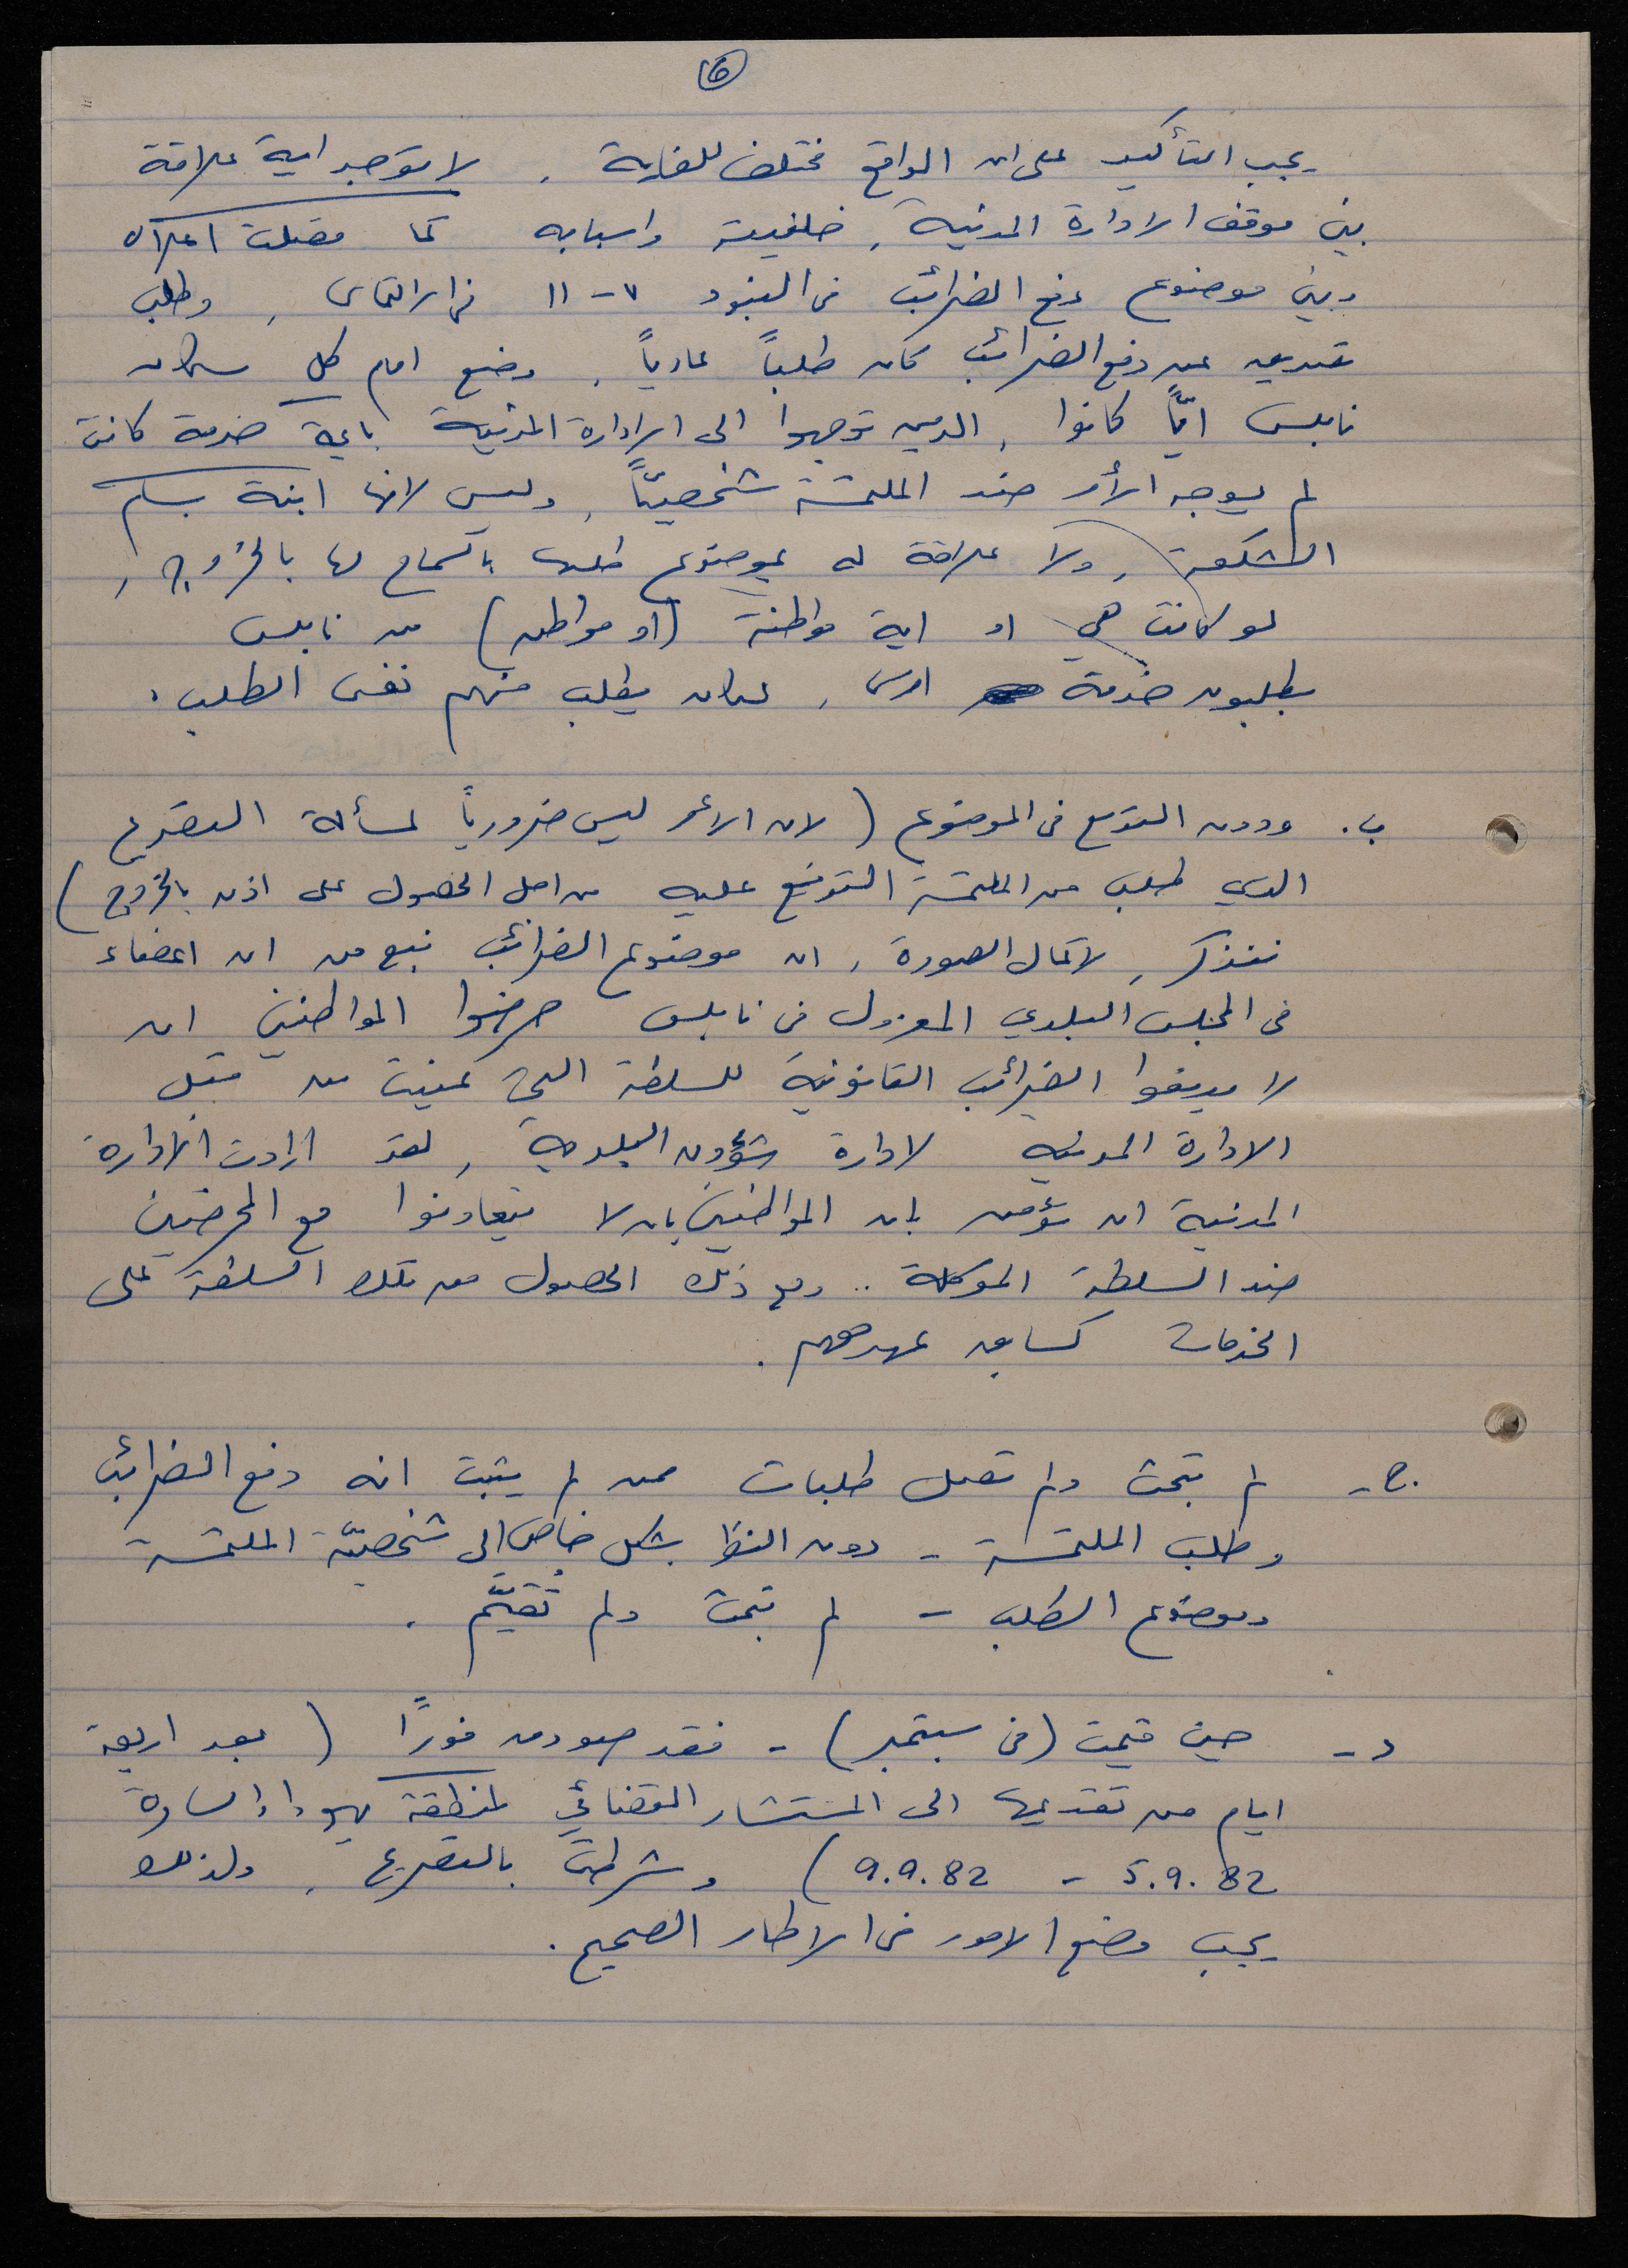 ٦
يجب التأكيد على ان الواقع مختلف للغاية . لا توجد اية علاقة
بين موقف الادارة المدنية ، خلفيته واسبابه كما فصلت اعلاه
وبين موضوع دفع الضرائب في البنود ٧ - ١١ في الالتماس ، وطلب
تصديق عن دفع الضرائب كان طلباً عادياً ، وضع امام كل سكان
نابلس ايّاً كانوا ، الذين توجهوا الى الادارة المدنية باية خدمة كانت
لم يوجه الأمر ضد الملتمسة شخصيّاً ، وليس لانها ابنة بسام
الشكعة ، ولا علاقة له بموضوع طلبها بالسماح لها بالخروج ،
لو كانت هي او اية مواطنة (او مواطن) من نابلس
يطلبون خدمة اخرى ، لكان يطلب منهم نفس الطلب .
ب . ودون التوسع في الموضوع ( لان الامر ليس ضرورياً لمسألة التصريح
الذي طلب من الملتمسة التوقيع عليه من اجل الحصول على اذن بالخروج )
سنذكر ، لاكمال الصورة ، ان موضوع الضرائب نبع من ان اعضاء
في المجلس البلدي المعزول في نابلس حرضوا المواطنين ان
لا يدفعوا الضرائب القانونية للسلطة التي عينت من قبل
الادارة المدنية لادارة شؤون البلدية ، لقد ارادت الادارة
المدنية ان تؤمن بان المواطنين بان لا يتعاونوا مع المحرضين
ضد السلطة الموكلة .. ومع ذلك الحصول من تلك السلطة على
الخدمات كسابق عهدهم .
ج - لم تبحث ولم تقبل طلبات ممن لم يثبت انه دفع الضرائب
وطلب الملتمسة - دون النظر بشكل خاص الى شخصيّة الملتمسة
وموضوع الطلب - لم تبحث ولم تُقيّم .
د - حين قيمت (في سبتمبر) - فقد صودق فوراً ( بعد اربعة
ايام من تقديمها الى المستشار القضائي لمنطقة يهودا والسامرة
5.9.82 - 9.9.82 ) وشرطت بالتصريح ، ولذلك
يجب وضع الامور في الاطار الصحيح .